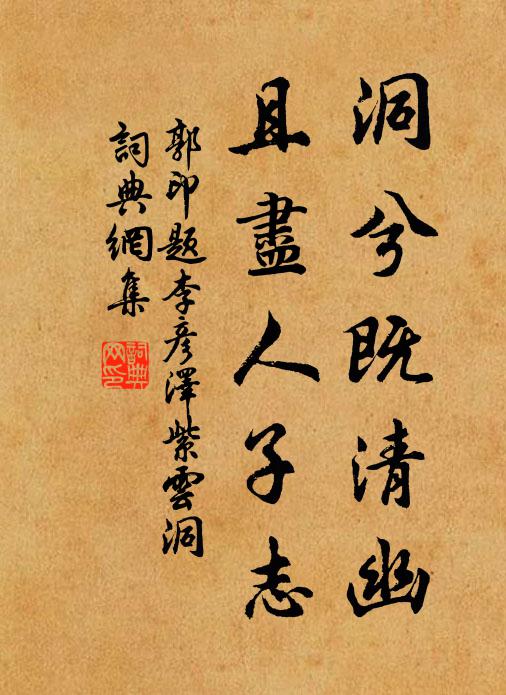 洞兮既清幽
且盡人子志
郭印題李彥澤紫雲洞
詞典網集
詞典網印